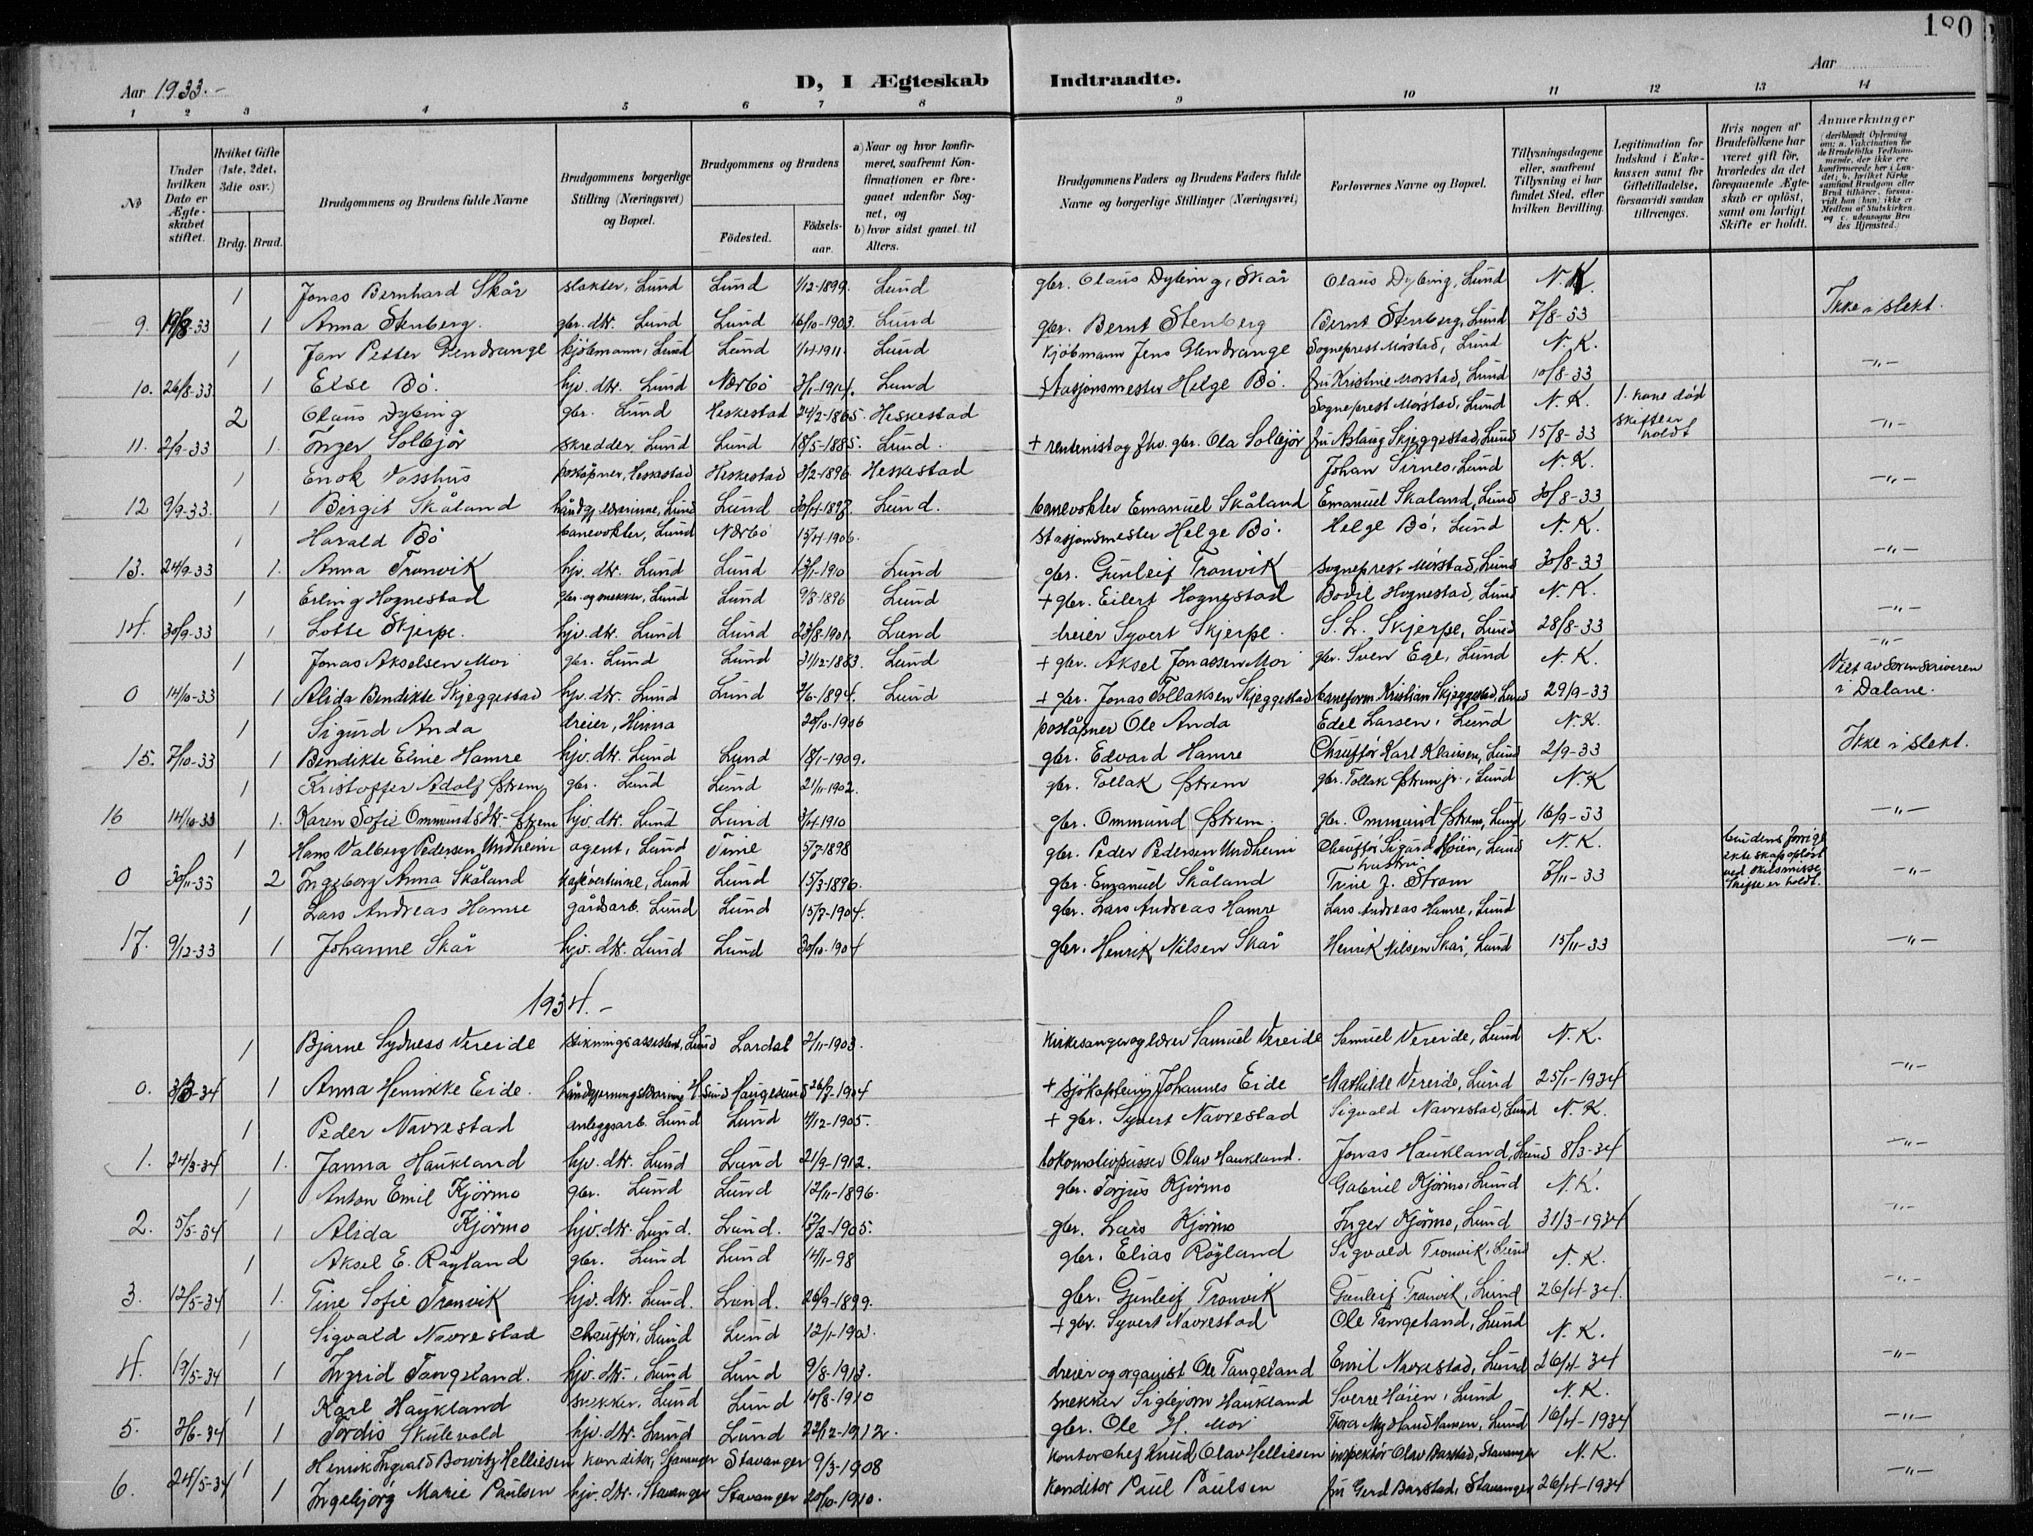 180
Aar 1933.-
D, I Ægteskab Indtraadte.
Aar
1 2 3 4 5 6 7 8 9 10 11 12 13 14
No
Under hvilken Dato er Ægteskabet stiftet.
Hvilket Gifte (1ste, 2det, 3die osv.)
Brdg. Brud.
Brudgommens og Brudens fulde Navne
Brudgommens borgerlige Stilling (Næringsvei) og Bopæl.
Brudgommens og Brudens
Fødested. Fødselsaar.
a) Naar og hvor konfirmeret, saafremt Konfirmationen er foregaaet udenfor Sognet, og
b) hvor sidst gaaet til Alters.
Brudgommens Faders og Brudens Faders fulde Navne og borgerlige Stillinger (Næringsvei)
Forlovernes Navne og Bopæl.
Tillysningsdagene eller, saafremt Tillysning ei har fundet Sted, efter hvilken Bevilling.
Legitimation for Indskud i Enkekassen samt for Giftetilladelse, forsaavidt saadan tiltrænges.
Hvis nogen af Brudefolkene har været gift før, hvorledes da det foregaaende Ægteskab er opløst, samt om lovligt Skifte er holdt.
Anmærkninger
1 Jonas Bernhard Skår slakter, Lund Lund 1/12-1899. Lund gbr. Olaus Dybing, Skår Olaus Dybing, Lund N. K.
9. 19/8-33 1 Anna Stenberg. gbr. dtr. Lund Lund 16/10-1903. Lund gbr. Bernt Stenberg Bernt Stenberg, Lund 7/8-33 Ikke i slekt.
1 Jan Petter Glendrange kjøbmann, Lund Lund 1/4-1911. Lund kjøbmann Jens Glendrange Sogneprest Mørstad, Lund N. K.
10. 26/8-33 1 Else Bø. hjv. dtr. Lund Nærbø 3/1-1914. Lund Stasjonsmester Helge Bø. fru Kristine Mørstad, Lund 10/8-33 -"-
2 Olaus Dybing gbr. Lund Heskestad 24/2-1865. Heskestad Sogneprest Mørstad, Lund N. K. 1. kone død
11. 2/9-33 1. Inger Solbjør skredder, Lund Lund 18/5-1885. Lund. + rentenist og fhv. gbr. Ola Solbjør fru Aslaug Skjeggestad, Lund 15/8-33 skifte er holdt -"-
1 Enok Vasshus poståpner, Heskestad Heskestad 3/2-1896 Heskestad Johan Sirnes, Lund N. K.
12 9/9-33. 1 Birgit Skåland håndgj. lærerinne, Lund Lund 30/4-1897. Lund. banevokter Emanuel Skåland Emanuel Skåland, Lund 30/8-33 -"-
1 Harald Bø banevokter, Lund Nærbø 15/4-1906. stasjonsmester Helge Bø. Helge Bø, Lund N. K.
13. 24/9-33 1. Anna Tronvik hjv. dtr. Lund Lund 13/1-1910 Lund gbr. Gunleif Tronvik sogneprest Mørstad, Lund 30/8-33 -"-
1 Erling Hognestad gbr. og snekker, Lund Lund 9/3-1896 Lund + gbr. Eilert Hognestad Bodil Hognestad, Lund N. K.
14. 30/9-33 1 Lotte Skjerpe. hjv. dtr. Lund Lund 23/8-1901. Lund dreier Syvert Skjerpe. S. L. Skjerpe, Lund 28/8-33 -"-
1 Jonas Akselsen Moi gbr. Lund Lund 31/12-1883. Lund + gbr. Aksel Jonassen Moi gbr. Sven Ege, Lund N. K. -"-
0 14/10-33 1 Alida Bendikte Skjeggestad hjv. dtr. Lund Lund 2/6-1894. Lund + gbr. Jonas Tollaksen Skjeggestad baneform. Kristian Skjeggestad, Lund 29/9-33 Viet av sorenskriveren i Dalane.
1 Sigurd Anda dreier, Hinna 20/10-1906 poståpner Ole Anda Edel Larsen, Lund N. K.
15. 7/10-33 1 Bendikte Eline Hamre hjv. dtr. Lund Lund 18/1-1909. gbr. Edvard Hamre Chauffør Karl Klausen, Lund 2/9-33 Ikke i slekt.
1 Kristoffer Adolf Østrem gbr. Lund Lund 21/11-1902. gbr. Tollak Østrem gbr. Tollak Østrem jr., Lund N. K
16 14/10-33 1. Karen Sofie Ommundsdtr. Østrem hjv. dtr. Lund Lund 3/4-1910 gbr. Ommund Østrem. gbr. Ommund Østrem, Lund 16/9-33 -"-
1 Hans Valberg Pedersen Undheim agent, Lund Time 5/7-1898 gbr. Peder Pedersen Undheim Chauffør Sigurd Høien, Lund N. K. brudens forrige ekteskap opløst ved skilsmisse
0 30/11-33 2 Ingeborg Anna Skåland kafévertinne, Lund Lund 15/3-1896. gbr. Emanuel Skåland hustru Trine J. Strøm 7/11-33 Skifte er holdt. -"-
1 Lars Andreas Hamre gårdsarb. Lund Lund 15/7-1904. gbr. Lars Andreas Hamre Lars Andreas Hamre, Lund
17. 9/12-33 1 Johanne Skår hjv. dtr. Lund Lund 30/10-1904 gbr. Henrik Nilsen Skår Henrik Nilsen Skår, Lund 15/11-33 -"-
1934.-
1 Bjarne Sydness Vereide stikningsassistent, Lund Lardal 2/11-1903. Kirkesanger og lærer Samuel Vereide Samuel Vereide, Lund N. K.
0. 3/3-34 1 Anna Henrikke Eide. Haugesund 26/7-1904 + sjøkaptein Johannes Eide Mathilde Vereide, Lund 25/1-1934 -"-
1 Peder Navrestad anleggsarb. Lund Lund 4/12-1905. + gbr. Syvert Navrestad Sigvald Navrestad, Lund N. K.
1. 24/3-34 1. Janna Haukland hjv. dtr. Lund Lund 21/9-1912. lokomotivpusser Olav Haukland. Jonas Haukland, Lund 8/3-34 -"-
1 Anton Emil Kjørmo gbr. Lund Lund 12/11-1896. gbr. Torjus Kjørmo Gabriel Kjørmo, Lund N. K.
2. 5/5-34 1 Alida Kjørmo hjv. dtr. Lund. Lund. 17/2-1905. gbr. Lars Kjørmo Inger Kjørmo, Lund 31/3-1934 -"-
1 Aksel E. Røyland gbr. Lund Lund 14/1-98 gbr. Elias Røyland Sigvald Tronvik, Lund N. K.
3. 12/5-34 1. Tine Sofie Tronvik hjv. dtr. Lund. Lund. 26/9-1899. gbr. Gunleif Tronvik Gunleif Tronvik, Lund 26/4-34. -"-
1 Sigvald Navrestad Chauffør, Lund Lund + gbr. Syvert Navrestad Ole Tangeland, Lund N. K.
4. 19/5-34 1 Ingrid Tangeland. hjv. dtr., Lund Lund 9/8-1913. dreier og organist Ole Tangeland Emil Navrestad, Lund 26/4-34 -"-
1 Karl Haukland snekker, Lund Lund 10/8-1910 snekker Sigbjørn Haukland Sverre Høien, Lund N. K.
5. 2/6-34 1 Tordis Skulevold hjv. dtr. Lund Lund 22/12-1912. gbr. Ole H. Moi Hansen, Lund 16/4-1934 -"-
1 Henrik Ingvald Bowitz Helliesen konditor, Stavanger Stavanger 9/3-1908 Kontorchef Knud Olav Helliesen inspektør Olav Barstad, Stavanger N. K.
6. 24/5-34 1 Ingebjørg Marie Paulsen hjv. dtr. Stavanger Stavanger 20/10-1910. Konditor Paul Paulsen fru Gerd Barstad, Stavanger 26/4-1934 -"-